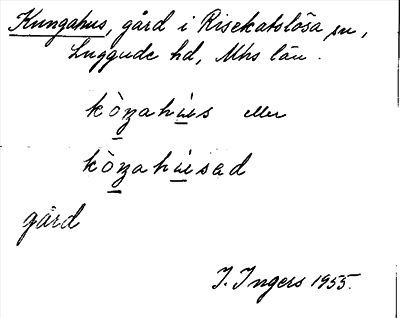 Kungahus, gård i Risekatslösa sn,
Luggude hd, Mhs län.
kòŋahu̇s eller
kòŋahu̇sad
gård
I. Ingers 1955.